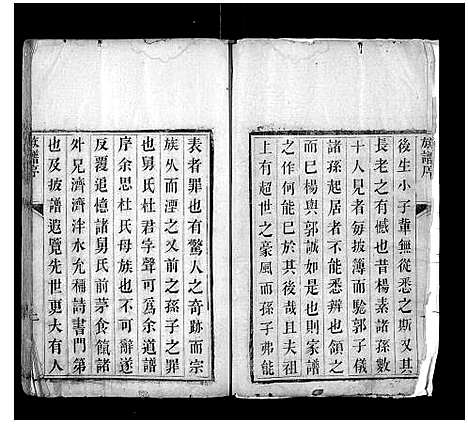 族譜序
後生小子輩無從悉之斯又其
長老之有憾也昔楊素諸孫數
十人見者每披簿而驗郭子儀
諸孫起居者不能悉辨也領之
而巳楊與郭誠如是也則家譜
之作何能已於其後哉且夫祖
上有超世之豪風而孫子弗能
表者罪也有驚人之奇跡而宗
族久而湮之又前之孫子之罪
也舅氏杜君字聲可為余道譜
序余思杜氏母族也不可辭遂
反覆追憶諸舅氏前茅食餼諸
外兄濟濟泮水允稱詩書門第
也及披譜遐覽先世更大有人
族譜序